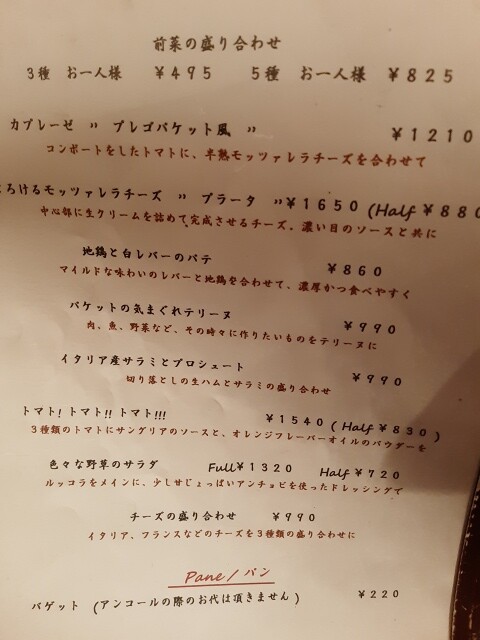 前菜の盛り合わせ
3種 お一人様 ¥495 5種 お一人様 ¥825
カプレーゼ " プレゴバケット風 " ¥1210
コンポートをしたトマトに、半熟モッツァレラチーズを合わせて
ろけるモッツァレラチーズ " ブラータ " ¥1650 (Half ¥880
中心部に生クリームを詰めて完成させるチーズ。濃い目のソースと共に
地鶏と白レバーのパテ ¥860
マイルドな味わいのレバーと地鶏を合わせて、濃厚かつ食べやすく
バケットの気まぐれテリーヌ ¥990
肉、魚、野菜など、その時々に作りたいものをテリーヌに
イタリア産サラミとプロシュート ¥990
切り落としの生ハムとサラミの盛り合わせ
トマト! トマト!! トマト!!! ¥1540 (Half ¥830)
3種類のトマトにサングリアのソースと、オレンジフレーバーオイルのパウダーを
色々な野草のサラダ Full¥1320 Half ¥720
ルッコラをメインに、少しせじょっぱいアンチョビを使ったドレッシングで
チーズの盛り合わせ ¥990
イタリア、フランスなどのチーズを3種類の盛り合わせに
Pane / パン
バゲット (アンコールの際のお代は頂きません) ¥220